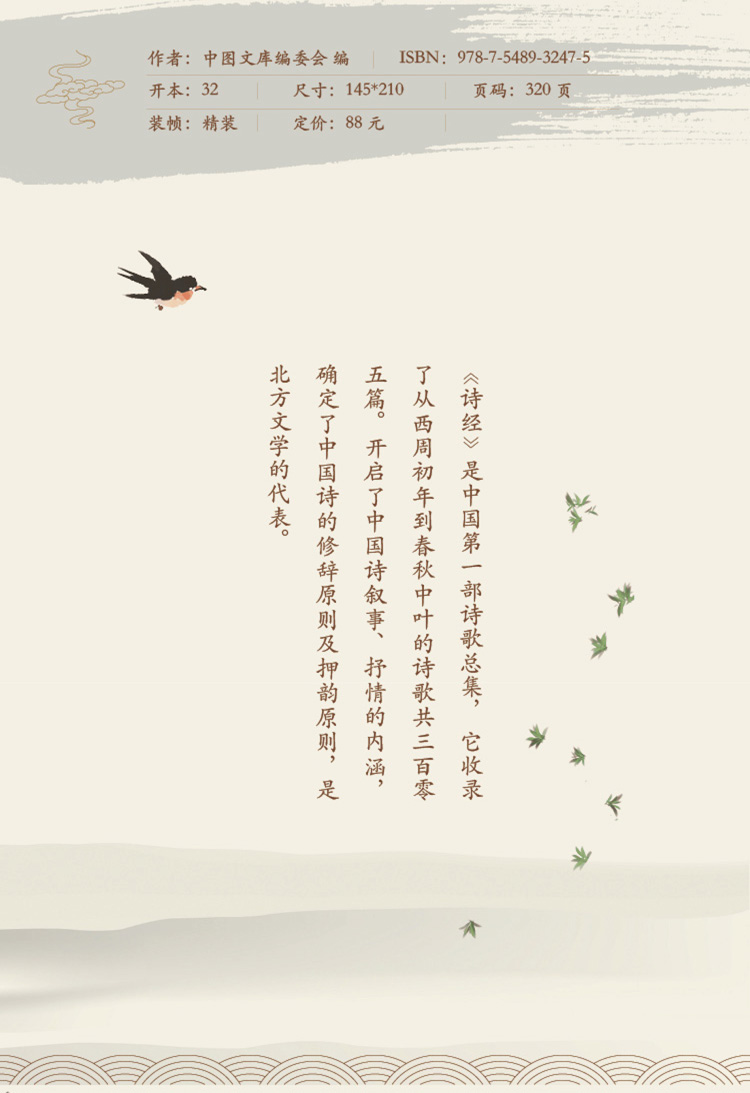 作者：中图文库编委会 编 ISBN：978-7-5489-3247-5
开本：32 尺寸：145*210 页码：320 页
装帧：精装 定价：88 元
《诗经》是中国第一部诗歌总集，它收录
了从西周初年到春秋中叶的诗歌共三百零
五篇。开启了中国诗叙事、抒情的内涵，
确定了中国诗的修辞原则及押韵原则，是
北方文学的代表。